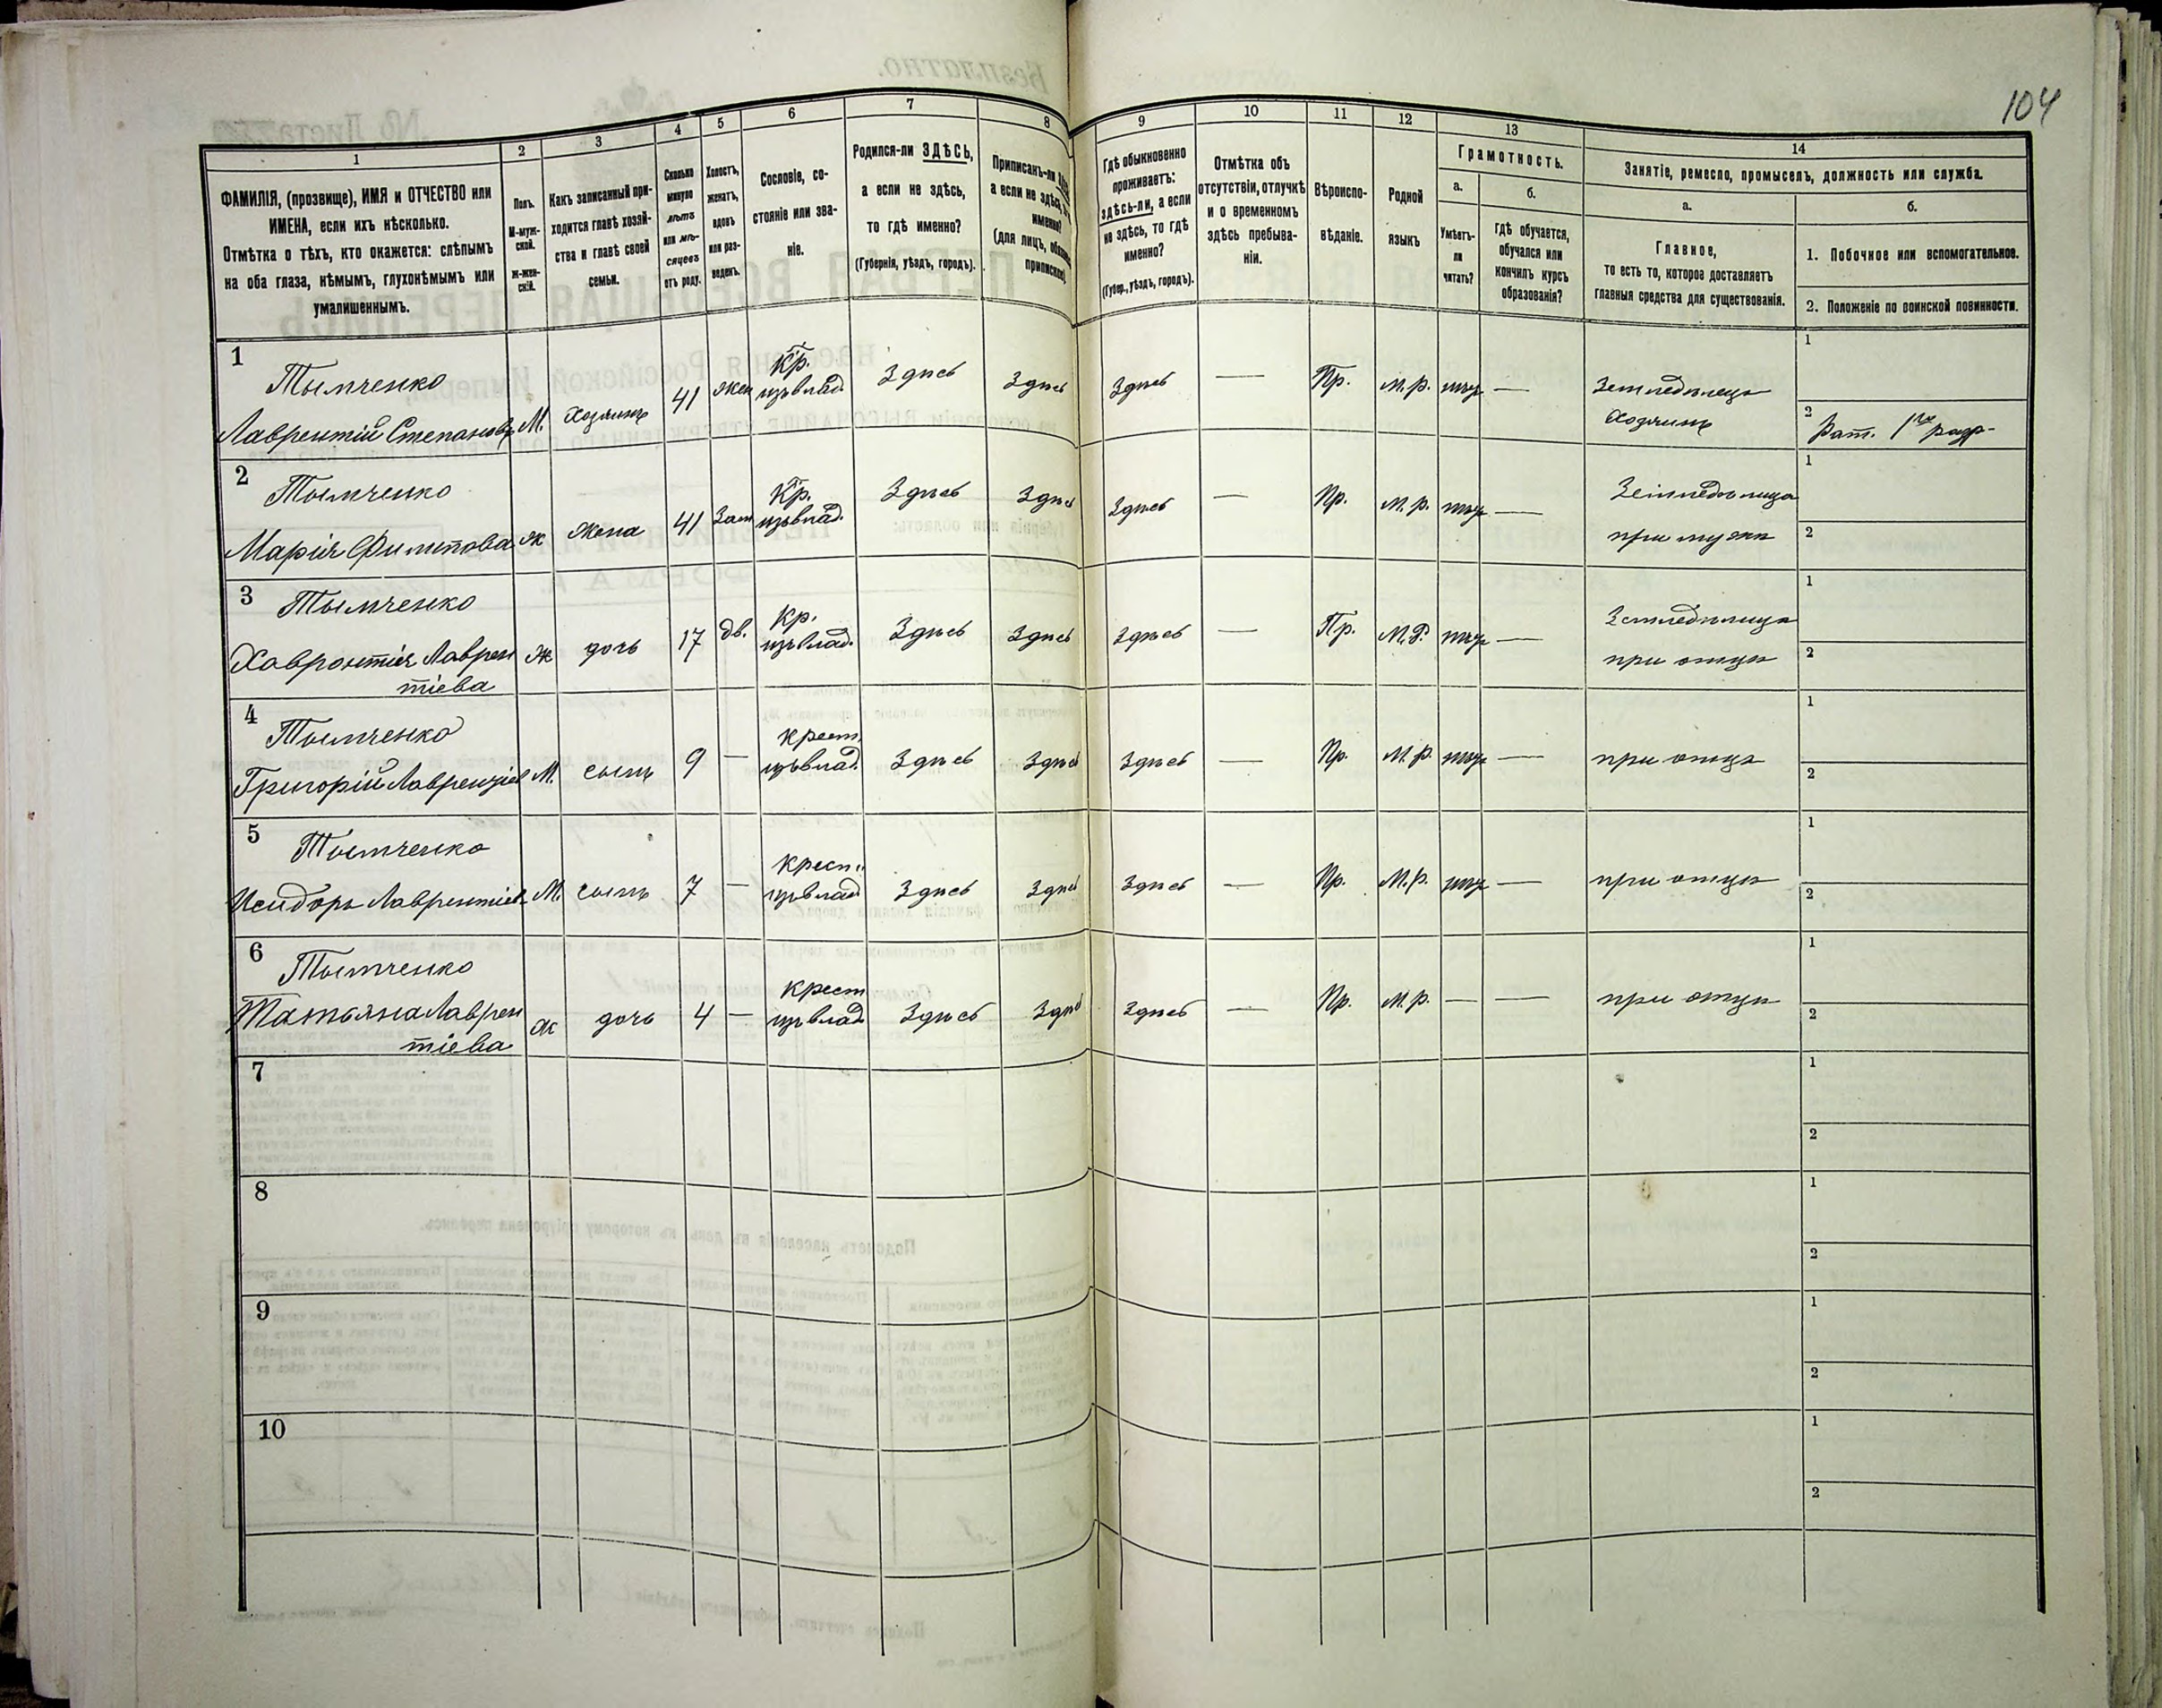 104
1 2 3 4 5 6 7 8 9 10 11 12 13 14
ФАМИЛІЯ, (прозвище), ИМЯ и ОТЧЕСТВО или
ИМЕНА, если ихъ нѣсколько.
Отмѣтка о тѣхъ, кто окажется: слѣпымъ
на оба глаза, нѣмымъ, глухонѣмымъ или
умалишеннымъ.
Полъ.
М-муж-
ской.
Ж-жен-
скій.
Какъ записанный при-
ходится главѣ хозяй-
ства и главѣ своей
семьи.
Сколько
минуло
лѣтъ
или мѣ-
сяцевъ
отъ роду.
Холостъ,
женатъ,
вдовъ
или раз-
веденъ.
Сословіе, со-
стояніе или зва-
ніе.
Родился-ли ЗДѢСЬ,
а если не здѣсь,
то гдѣ именно?
(Губернія, уѣздъ, городъ).
Приписанъ-ли
а если не здѣсь,
именно?
(для лицъ,
Гдѣ обыкновенно
проживаетъ:
здѣсь-ли, а если
не здѣсь, то гдѣ
именно?
(Губер., уѣздъ, городъ).
Отмѣтка объ
отсутствіи, отлучкѣ
и о временномъ
здѣсь пребыва-
ніи.
Вѣроиспо-
вѣданіе.
Родной
языкъ
Грамотность.
а. б.
Умѣетъ-
ли
читать?
гдѣ обучается,
обучался или
кончилъ курсъ
образованія?
Занятіе, ремесло, промыселъ, должность или служба.
а. б.
Главное,
то есть то, которое доставляетъ
главныя средства для существованія.
1. Побочное или вспомогательное.
2. Положеніе по воинской повинности.
1 Тымченко
Лаврентій Степановъ М. Хозяинъ 41 жен Кр. изъ влад. Здѣсь Здѣсь Здѣсь — Пр. М.р. — Земледѣлецъ
хозяинъ
1
2 Рат. 1го разр.
2 Тымченко
Марія Филипова Ж жена 41 Зам Кр. изъ влад. Здѣсь Здѣсь Здѣсь — Пр. М.р. — Земледѣлица
при мужѣ
1
2
3 Тымченко
Лаврен
тіева Ж дочь 17 дв. Кр. изъ влад. Здѣсь Здѣсь Здѣсь — Пр. М.Р. — Земледѣлица
при отцѣ
1
2
4 Тымченко
Григорій М. сынъ 9 — крест. изъ влад. Здѣсь Здѣсь Здѣсь — Пр. М.р. — при отцѣ
1
2
5 Тымченко
Исидоръ Лаврентіев М. сынъ 7 — крест. изъ влад Здѣсь Здѣсь Здѣсь — Пр. М.р. — при отцѣ
1
2
6 Тымченко
Татьяна Лаврен
тіева Ж дочь 4 — крест изъ влад Здѣсь Здѣсь Здѣсь — Пр. М.р. — — при отцѣ
1
2
7
1
2
8
1
2
9
1
2
10
1
2